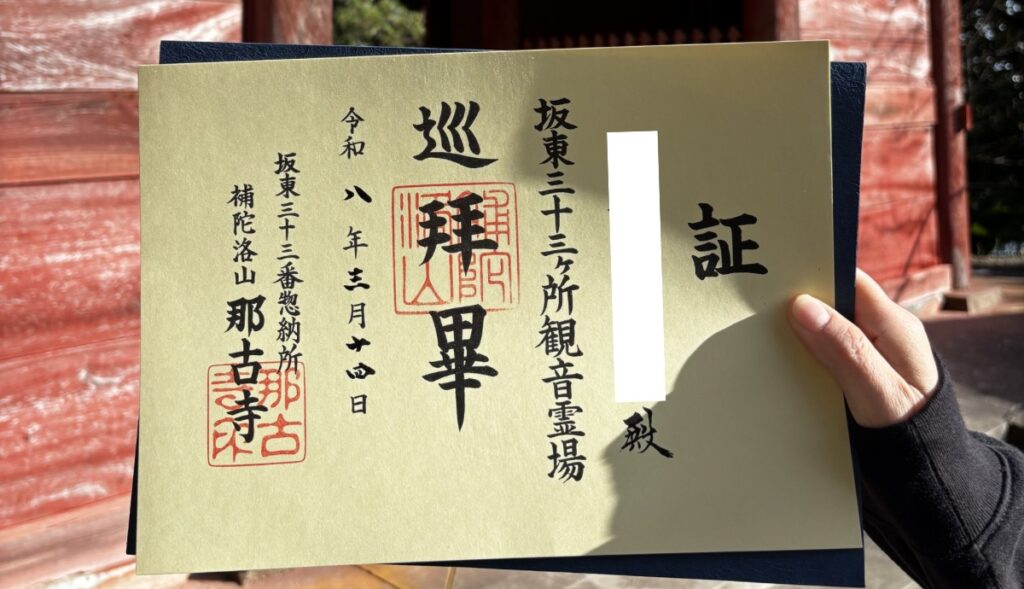 証
殿
坂東三十三ヶ所観音霊場
巡拝畢
令和八年三月十四日
坂東三十三番惣納所
補陀洛山那古寺
補陀洛山
那古寺印